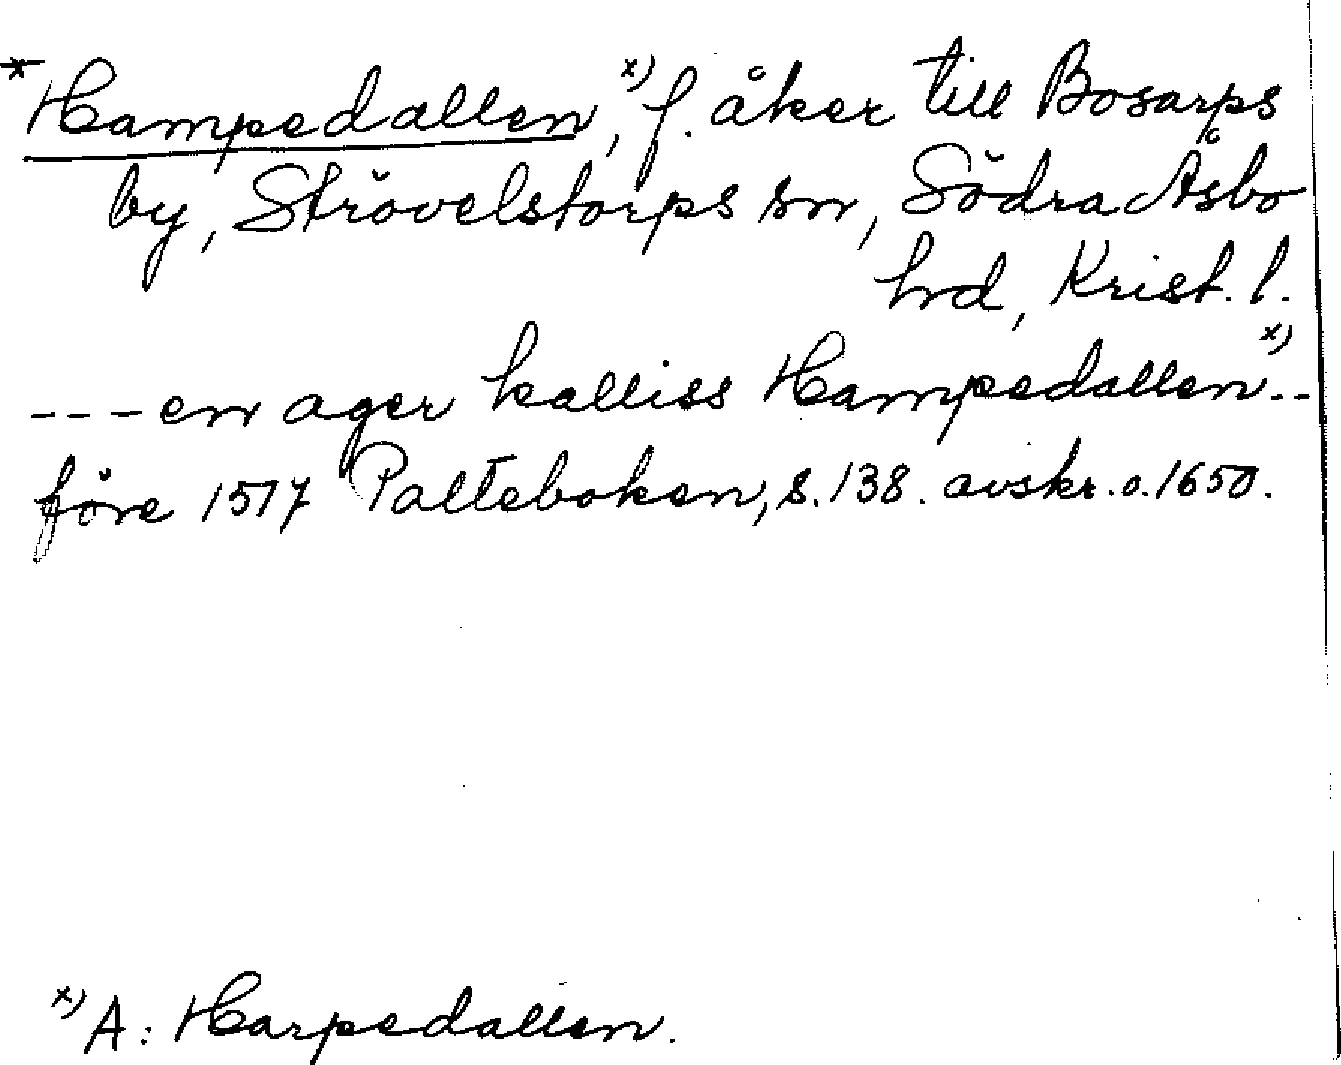 *Hampedallen,ˣ⁾ f. åker till Bosarps
by, Strövelstorps sn, Södra Åsbo
hd, Krist. l.
---en ager kalliss Hampedallenˣ⁾--
före 1517 Palteboken, s. 138. avskr. o. 1650.
ˣ⁾ A: Harpedallen.